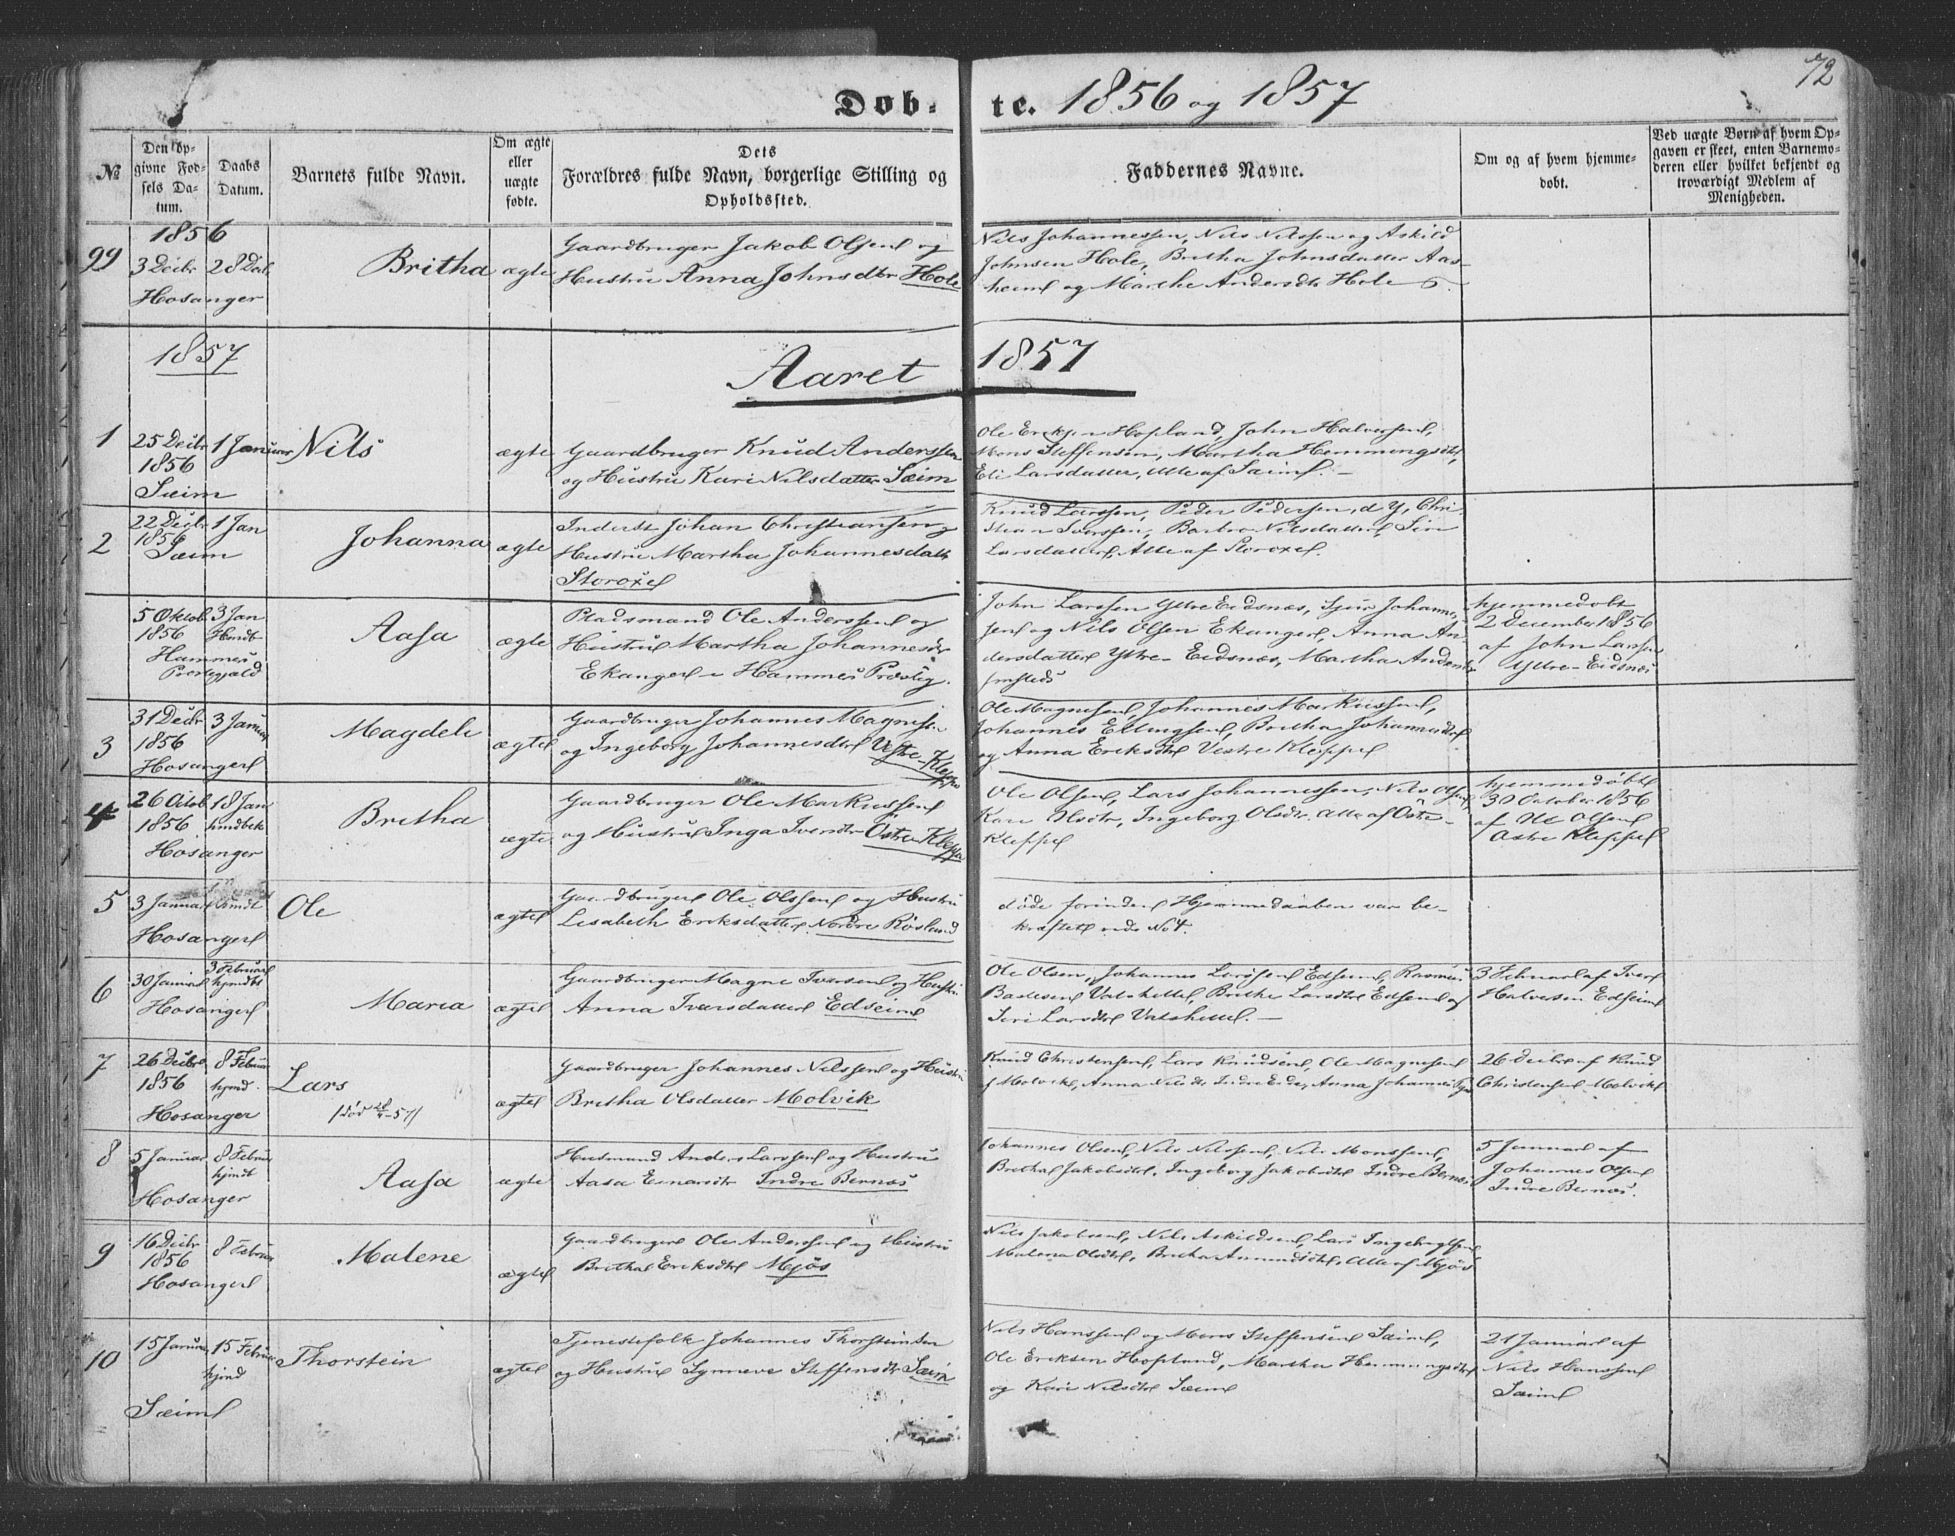 72
Døb- te. 1856 og 1857
No
Den op-
givne Fød-
sels Da-
tum.
Daabs
Datum.
Barnets fulde Navn.
Om ægte
eller
uægte
fødte.
Dets
Forældres fulde Navn, borgerlige Stilling og
Opholdssted.
Faddernes Navne.
Om og af hvem hjemme-
døbt.
Ved uægte Børn af hvem Op-
gaven er skeet, enten Barnemo-
deren eller hvilket bekjendt og
troværdigt Medlem af
Menigheden.
1856
99
3 Decbr
Hosanger
28 Decb
Britha
ægte
Gaardbruger Jakob Olsen og
Hustru Anna Johnsdtr Hole
Nils Johannessen, Nils Nilssen og Askild
Johnsen Hole, Britha Johnsdatter Aas-
heim og Marthe Andersdtr Hole
1857
Aaret 1857
1
25 Decbr
1856
Sæim
1 Januar
Nils
ægte
Gaardbruger Knud Anderssen
og Hustru Kari Nilsdatter Sæim
Ole Eriksen Hopland, John Halversen,
Mons Steffensen, Martha Hemmingsdtr,
Eli Larsdatter, Alle af Sæim. -
2
22 Decbr
1856
Sæim
1 Jan
Johanna
ægte
Inderst Johan Christiansen og
Hustru Martha Johannesdatr
Storoxel
Knud Larssen, Peder Pedersen, d Y, Chri
stian Iverssen, Barbro Nilsdatter, Siri
Larsdatter, Alle af Storoxel.
5 Oktob
1856
Hammers
Præstegjald
3 Jan
Aasa
ægte
Pladsmand Ole Anderssen og
Hustru Martha Johannesdtr
Ekanger i Hammers Præstg.
John Larssen Yttre Eidsnæs, Sjur Johannes-
sen og Nils Olsen Ekanger, Anna An-
dersdatter Yttre-Eidsnæs, Martha Andersdtr
hjemmedøbt
2 December 1856
af John Larssen
Yttre-Eidsnæs
3
31 Decbr
1856
Hosanger
3 Januar
Magdeli
ægte
Gaardbruger Johannes Magnessen
og Ingeborg Johannesdtr Vestre-Kleppe
Ole Magnesen, Johannes Markussen,
Johannes Ellingsen, Britha Johannesdtr
og Anna Eriksdtr Vestre Kleppe
4
26 Octob
1856
Hosanger
18 Jan
Britha
ægte
Gaardbruger Ole Markussen
og Hustru Inga Iversdtr Østre Kleppe
Ole Olsen, Lars Johannessen, Nils Olsen
Kari Olsdtr, Ingeborg Olsdtr, Alle af Østre-
Kleppe
hjemmedøbt
30 October 1856
af Ole Olsen
Østre Kleppe
5
3 Januar
Hosanger
Ole
ægte
Gaardbruger Ole Olssen og Hustru
Lisabeth Eriksdatter Nordre Rosland
døde forinden Hjemmedaaben var be-
kræftet vide No 4.
6
30 Januar
Hosanger
3 Februar
hjmdbt
Maria
ægte
Gaardbruger Magne Iversen og Hustru
Anna Iversdatter Edseim
Ole Olsen, Johannes Larssen Edseim, Rasmus
Vatshelle, Britha Larsdtr Edseim og
Siri Larsdtr Vatshelle. -
3 Februar af Iver
Halversen Edseim
7
26 Decbr
1856
Hosanger
8 Februar
hjmd.
Lars
ægte
Gaardbruger Johannes Nilssen og Hustru
Britha Olsdatter Molvik
Knud Christensen, Lars Knudsen, Ole Magnesen
26 Decbr af Knud
Christensen Molvik
8
5 Januar
Hosanger
8 Februar
hjmdt
Aasa
ægte
Husmand Anders Larssen og Hustru
Aasa Einarsdtr Indre Bernæs
Johannes Olsen, Nils Nilssen, Nils Monssen,
Britha Jakobsdtr, Ingeborg Jakobsdtr Indre Bernæs
5 Januar af
Johannes Olsen
Indre Bernæs.
9
16 Decbr
1856
Hosanger
8 Februar
Malene
ægte
Gaardbruger Ole Anderssen og Hustru
Britha Eriksdtr Mjøs
Nils Jakobsen, Nils Askildsen, Lars Ingebrigtsen
Malena Olsdtr, Britha Amundsdtr, Alle af Mjøs
10
15 Januar
Sæim
15 Februar
hjmd
Thorstein
ægte
Tjenestefolk Johannes Thorsteinsen
og Hustru Synneve Steffensdtr Sæim
Nils Hanssen og Mons Steffensen Sæim,
Ole Eriksen Hopland, Martha Hemmingsdtr
og Kari Nilsdtr Sæim
21 Januar af
Nils Hanssen
Sæim